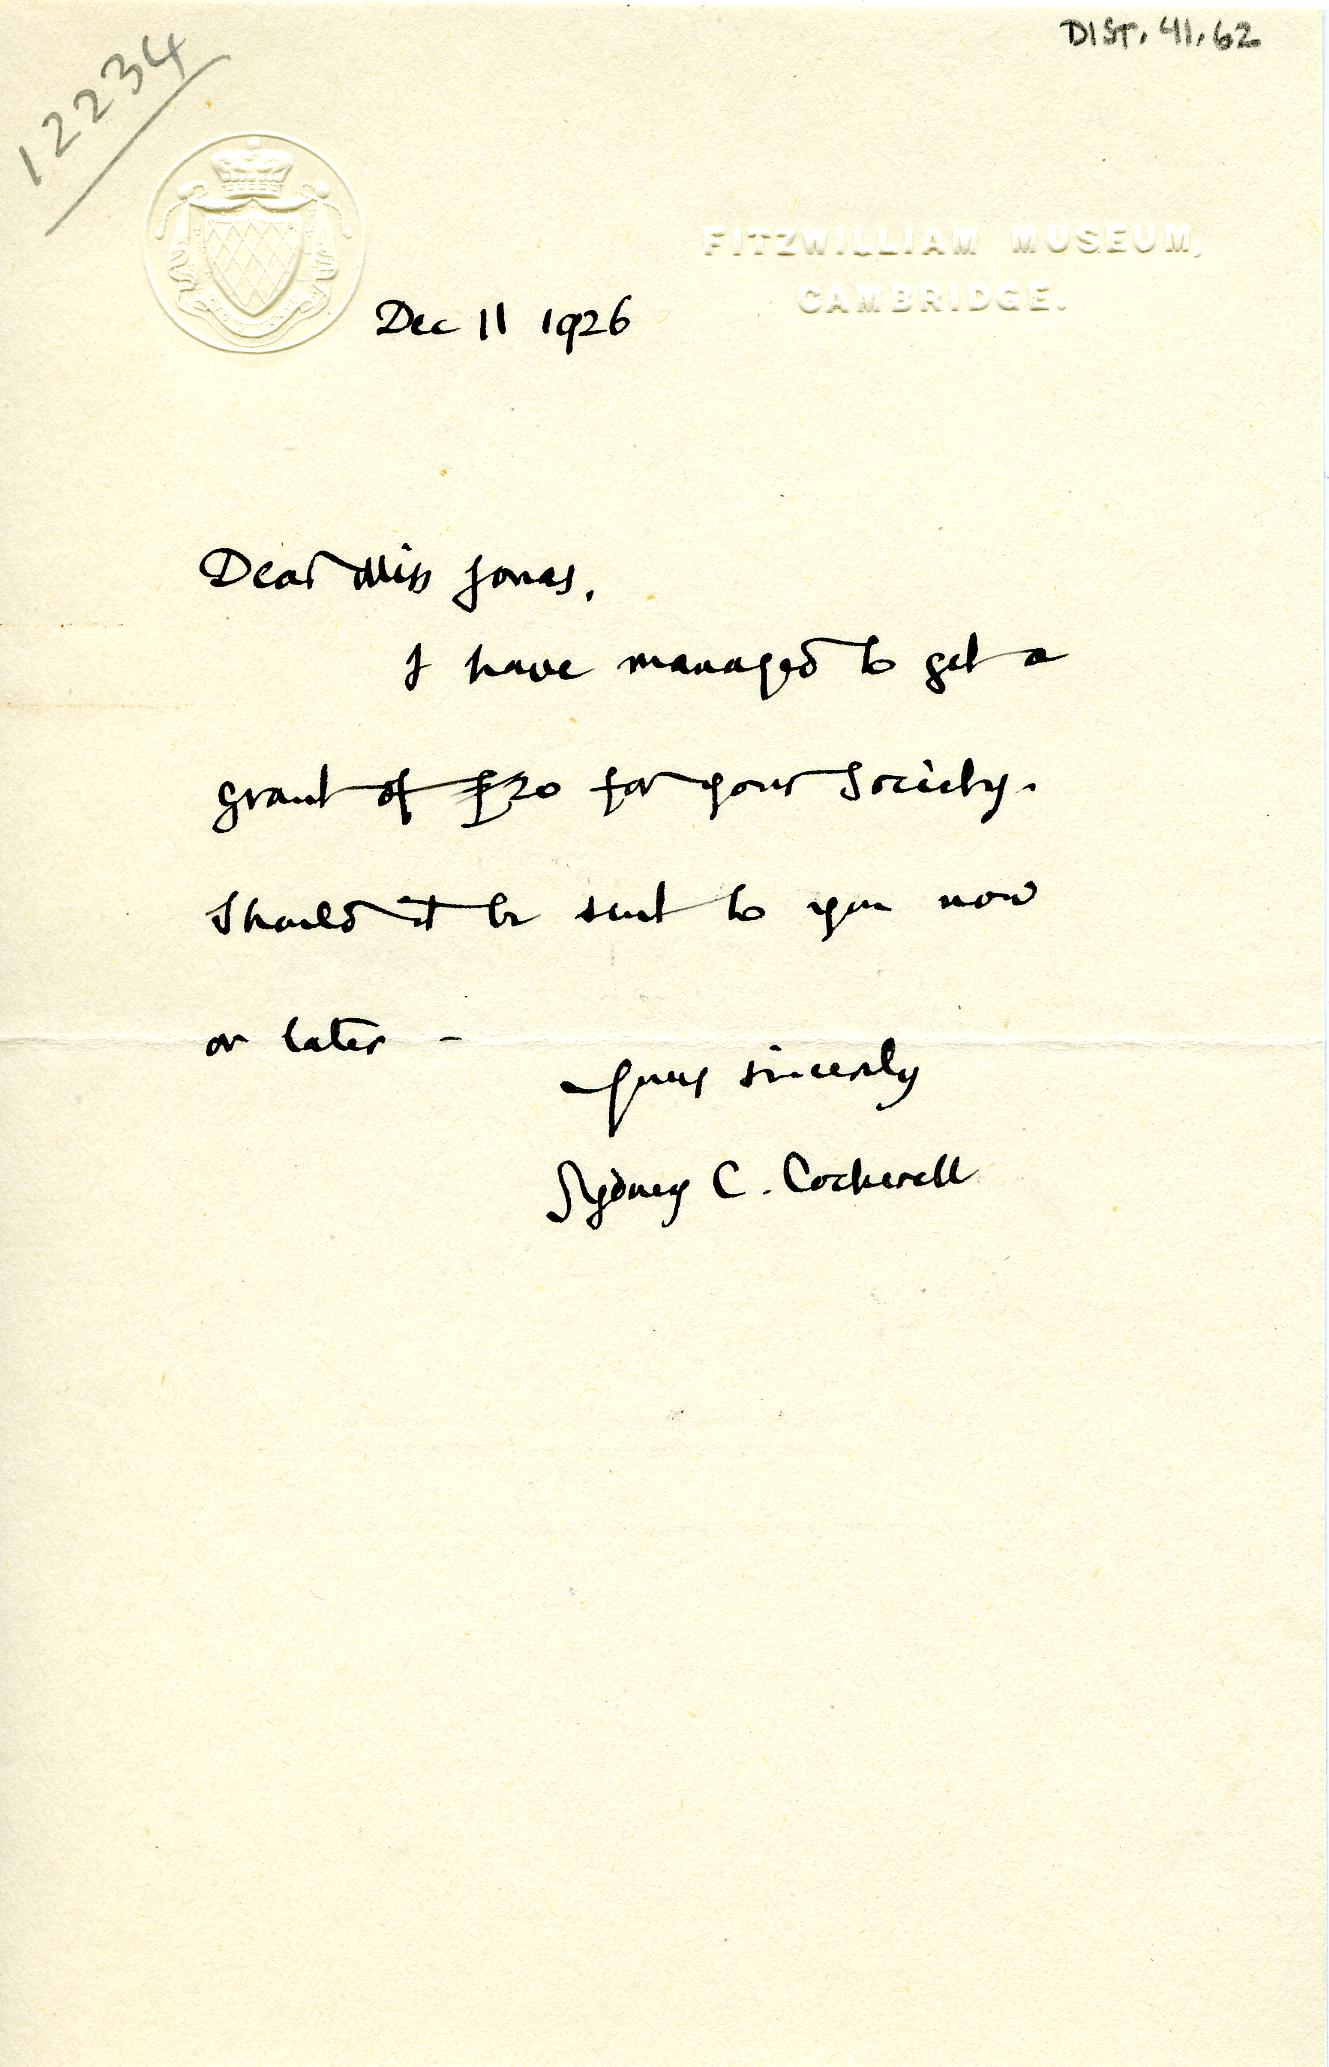 12234
DIST. 41.62
FITZWILLIAM MUSEUM,
CAMBRIDGE.
Dec 11 1926
Dear Miss Jonas,
I have managed to get a
grant of £20 for your Society.
Should it be sent to you now
or later –
Yours sincerely
Sydney C. Cockerell